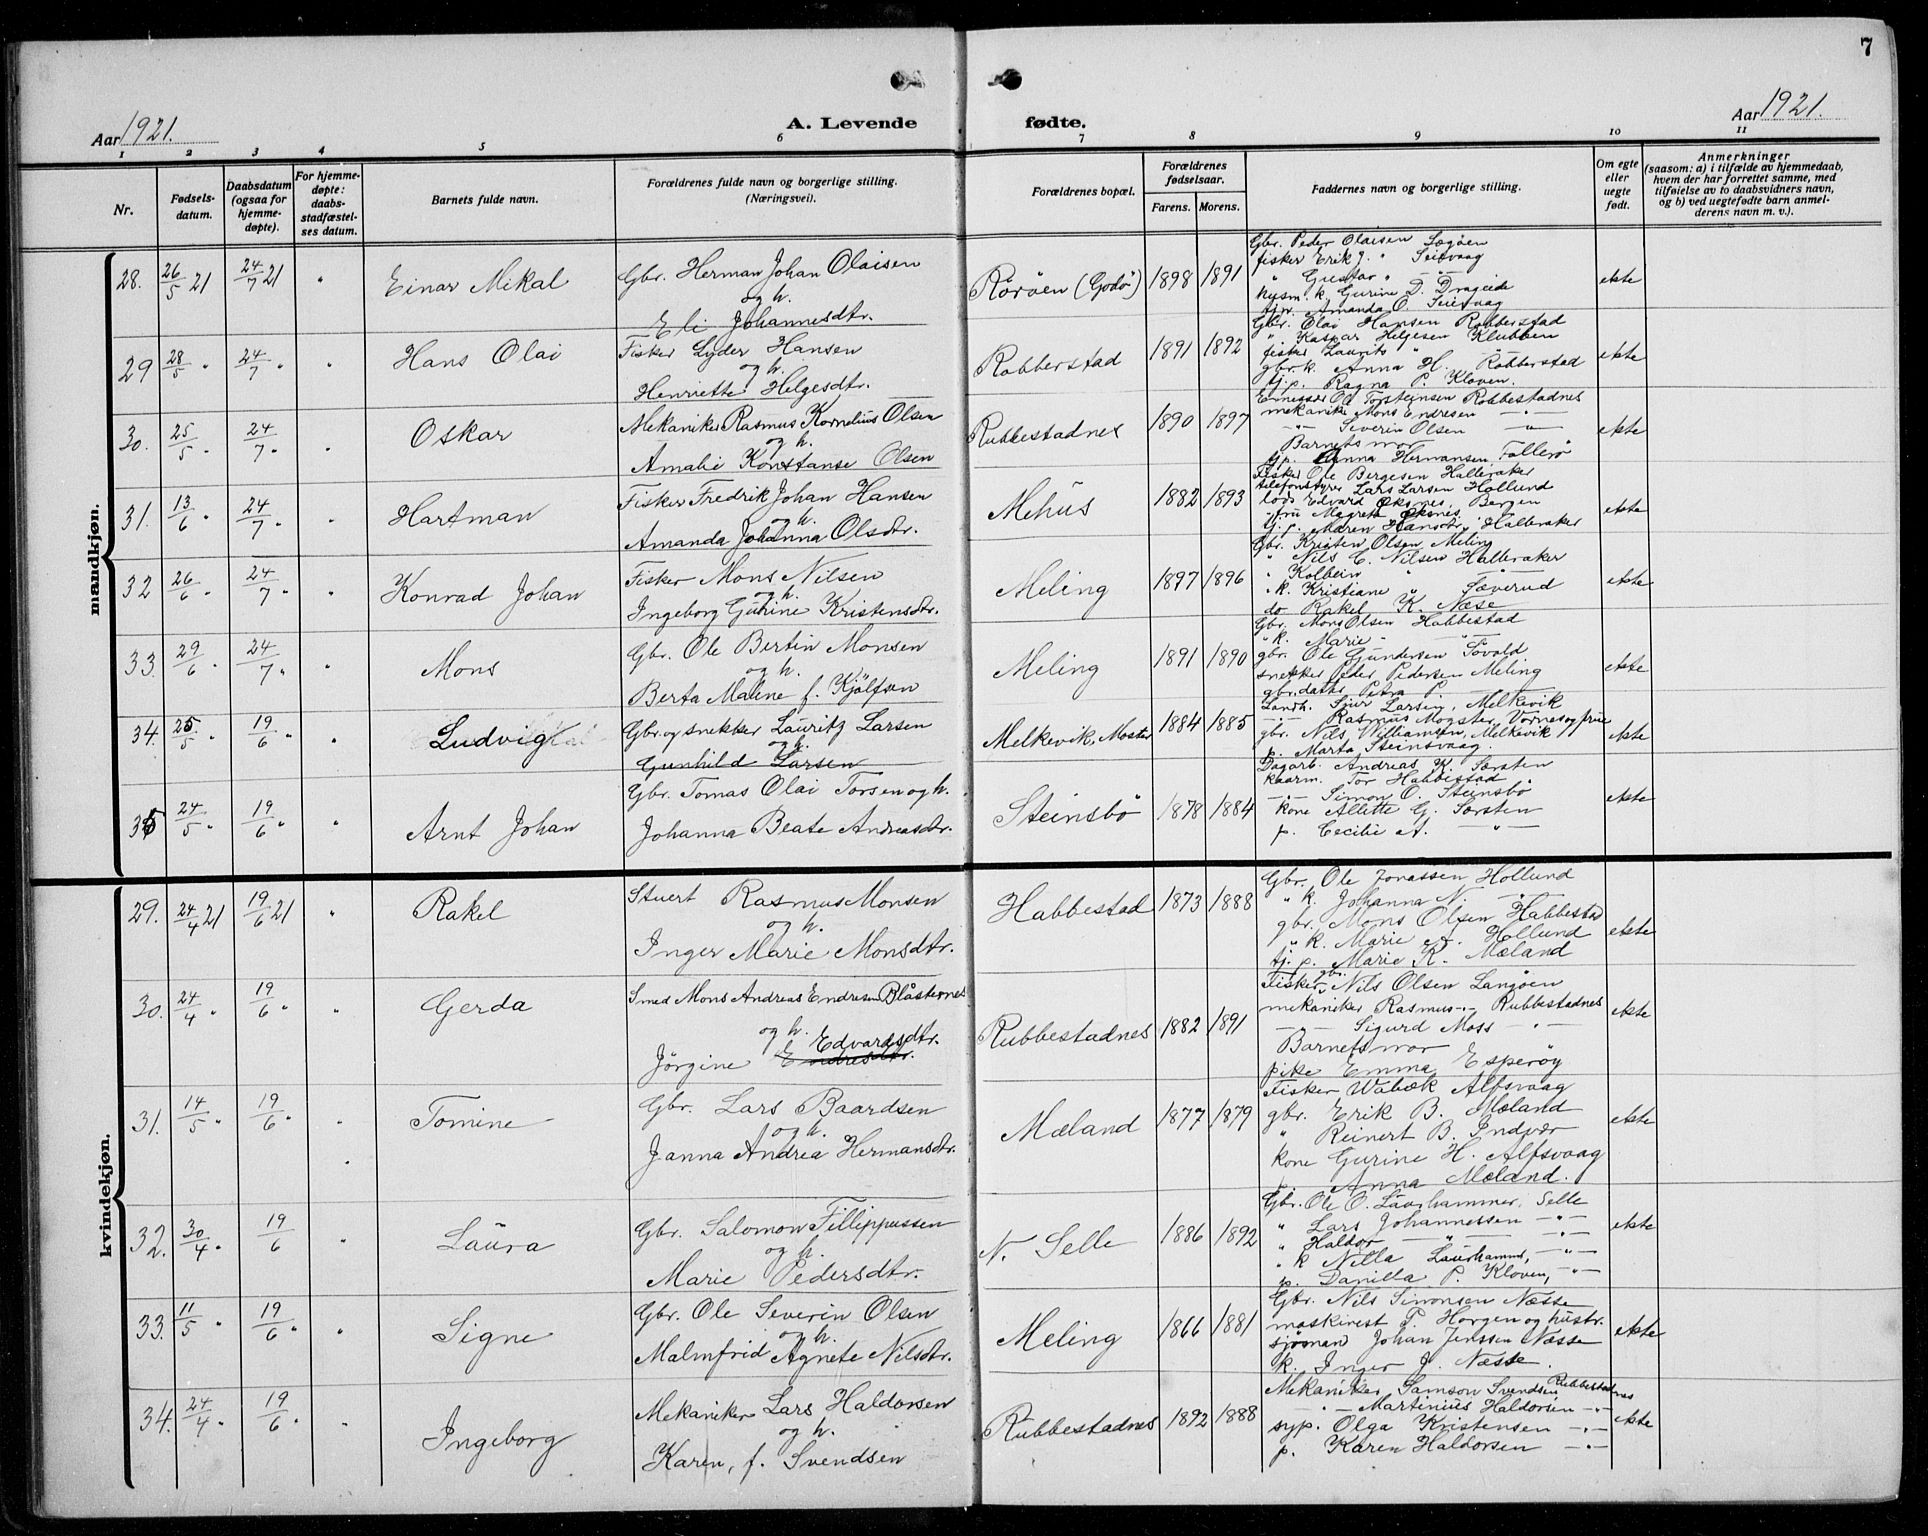 7
Aar 1921.
A. Levende fødte.
Aar 1921.
1 2 3 4 5 6 7 8 9 10 11
Nr.
Fødsels-
datum.
Daabsdatum
(ogsaa for
hjemme-
døpte).
For hjemme-
døpte:
daabs-
stadfæstel-
ses datum.
Barnets fulde navn.
Forældrenes fulde navn og borgerlige stilling.
(Næringsvei).
Forældrenes bopæl.
Forældrenes
fødselsaar.
Farens. Morens.
Faddernes navn og borgerlige stilling.
Om egte
eller
uegte
født.
Anmerkninger
(saasom: a) i tilfælde av hjemmedaab,
hvem der har forrettet samme, med
tilføielse av to daabsvidners navn,
og b) ved uegtefødte barn anmel-
derens navn m. v.).
mandkjøn.
28. 26/5 21 24/7 21 " Einar Mikal
Gbr. Herman Johan Olaisen
og h.
Eli Johannesdtr.
Röröen (Godö) 1898 1891
Gbr. Peder Olaisen Sægöen
fisker Erik J. " Seisvaag
" Gustav " "
husm. k. Gurine D. Drageide
tj. p. Amanda O. Seisvaag
ekte
29 28/5 " 24/7 " " Hans Olai
Fisker Lyder Hansen
og h.
Henriette Helgesdtr.
Robberstad 1891 1892
Gbr. Olai Hansen Robberstad
" Kaspar Helgesen Klubben
fisker Laurits "
gbr.k. Anna H. Robberstad
tj.p. Ragna P. Kloven.
ekte
30. 25/5 " 24/7 " " Oskar
Mekaniker Rasmus Kornelius Olsen
og h.
Amalie Konstanse Olsen
Rubbestadnes 1890 1897
Ole Torsteinsen Robbestadnes
mekanike Mons Endresen " "
" Severin Olsen "
Barnets mor
tjp. Anna Hermansen, Follerö
ekte
31. 13/6 " 24/7 " " Hartman
Fisker Fredrik Johan Hansen
og h.
Amanda Johanna Olsdtr.
Mehus 1882 1893
Fisker Ole Bergesen Halleraker
telefonstyrer Lars Larsen Hollund
lods Edvard Öksnes, Bergen
fru Magreta Öksnes "
tj. p. Maren Hansdtr., Halleraker
ekte
32 26/6 " 24/7 " " Konrad Johan
Fisker Mons Nilsen
og h.
Ingeborg Gurine Kristensdtr.
Meling 1897 1896
Gbr. Kristen Olsen Meling
" Nils C. Nilsen Halleraker
" Kolbein " "
" k. Kristiane " Sæverud
do Rakel K. Næse
ekte
33. 29/6 " 24/7 " " Mons
Gbr. Ole Bertin Monsen
og h.
Berta Maline f. Kjölfsen
Meling 1891 1890
Gbr. Mons Olsen Habbestad
" k. Marie " "
gbr. Ole Gundersen Tovold
snekker Peder Pedersen Meling
gbr.datter Petra P. "
ekte
34. 25/5 " 19/6 " " Ludvig
Gbr. og snekker Lauritz Larsen
og h.
Gunhild Larsen
Melkevik, Moster 1884 1885
Landh. Sjur Larsen, Melkevik
" Rasmus Mogster, Vornes og frue
gbr. Nils Williamsen, Melkevik
p. Marta Steinsvaag.
ekte
35 24/5 " 19/6 " " Arnt Johan
Gbr. Tomas Olai Torsen og h.
Johanna Beate Andreasdtr.
Steinsbö 1878 1884
Dagarb. Andreas K. Sörsten
kaarm. Tor Habbestad
" Simon O. Steinsbö
kone Allette G. Sörsten
p. Cecilie A. "
ekte
kvindekjøn.
29. 24/4 21 19/6 21 " Rakel
Stuert Rasmus Monsen
og h.
Inger Marie Monsdtr.
Habbestad 1873 1888
Gbr. Ole Jonassen Hollund
" k. Johanna N. "
gbr. Mons Olsen Habbestad
" k. Marie A. Hollund
tj. p. Marie K. Mæland
ekte
30. 24/4 " 19/6 " " Gerda
Smed Mons Andreas Endresen Blåsternes
og h. Edvardsdtr.
Jörgine Endresdtr.
Rubbestadnes 1882 1891
Fisker gbr. Nils Olsen Langöen
mekaniker Rasmus " Rubbestadnes
" Sigurd Moss "
Barnets mor
pike Emma Esperöy
ekte
31. 14/5 " 19/6 " " Tomine
Gbr. Lars Baardsen
og h.
Janna Andrea Hermansdtr.
Mæland 1877 1879
Fisker Wabæk Alfsvaag
gbr. Erik B. Mæland
" Reinert B. Indvær
kone Gurine H. Alfsvaag
p. Anna Mæland.
ekte
32. 30/4 " 19/6 " Laura
Gbr. Salomon Fillippussen
og h.
Marie Pedersdtr.
N. Selle 1886 1892
Gbr. Ole O. Laurhammer, Selle
" Lars Johannessen "
" Haldor " "
" k Nilla Laurhammer, "
p. Danilla P. Kloven, "
ekte
33. 11/5 " 19/6 " " Signe
Gbr. Ole Severin Olsen
og h.
Malmfrid Agnete Nilsdtr.
Meling 1866 1881
Gbr. Nils Simonsen Næsse
maskinest P. Horgen og hustr.
sjöman Johan Jenssen Næsse
k. Inger J. Næsse.
ekte
34. 24/4 " 19/6 " " Ingeborg
Mekaniker Lars Haldorsen
og h.
Karen, f. Svendsen
Rubbestadnes 1892 1888
Mekaniker Samson Svendsen Rubbestadnes
" Martinius Haldorsen "
syp. Olga Kristensen "
p. Karen Haldorsen "
ekte